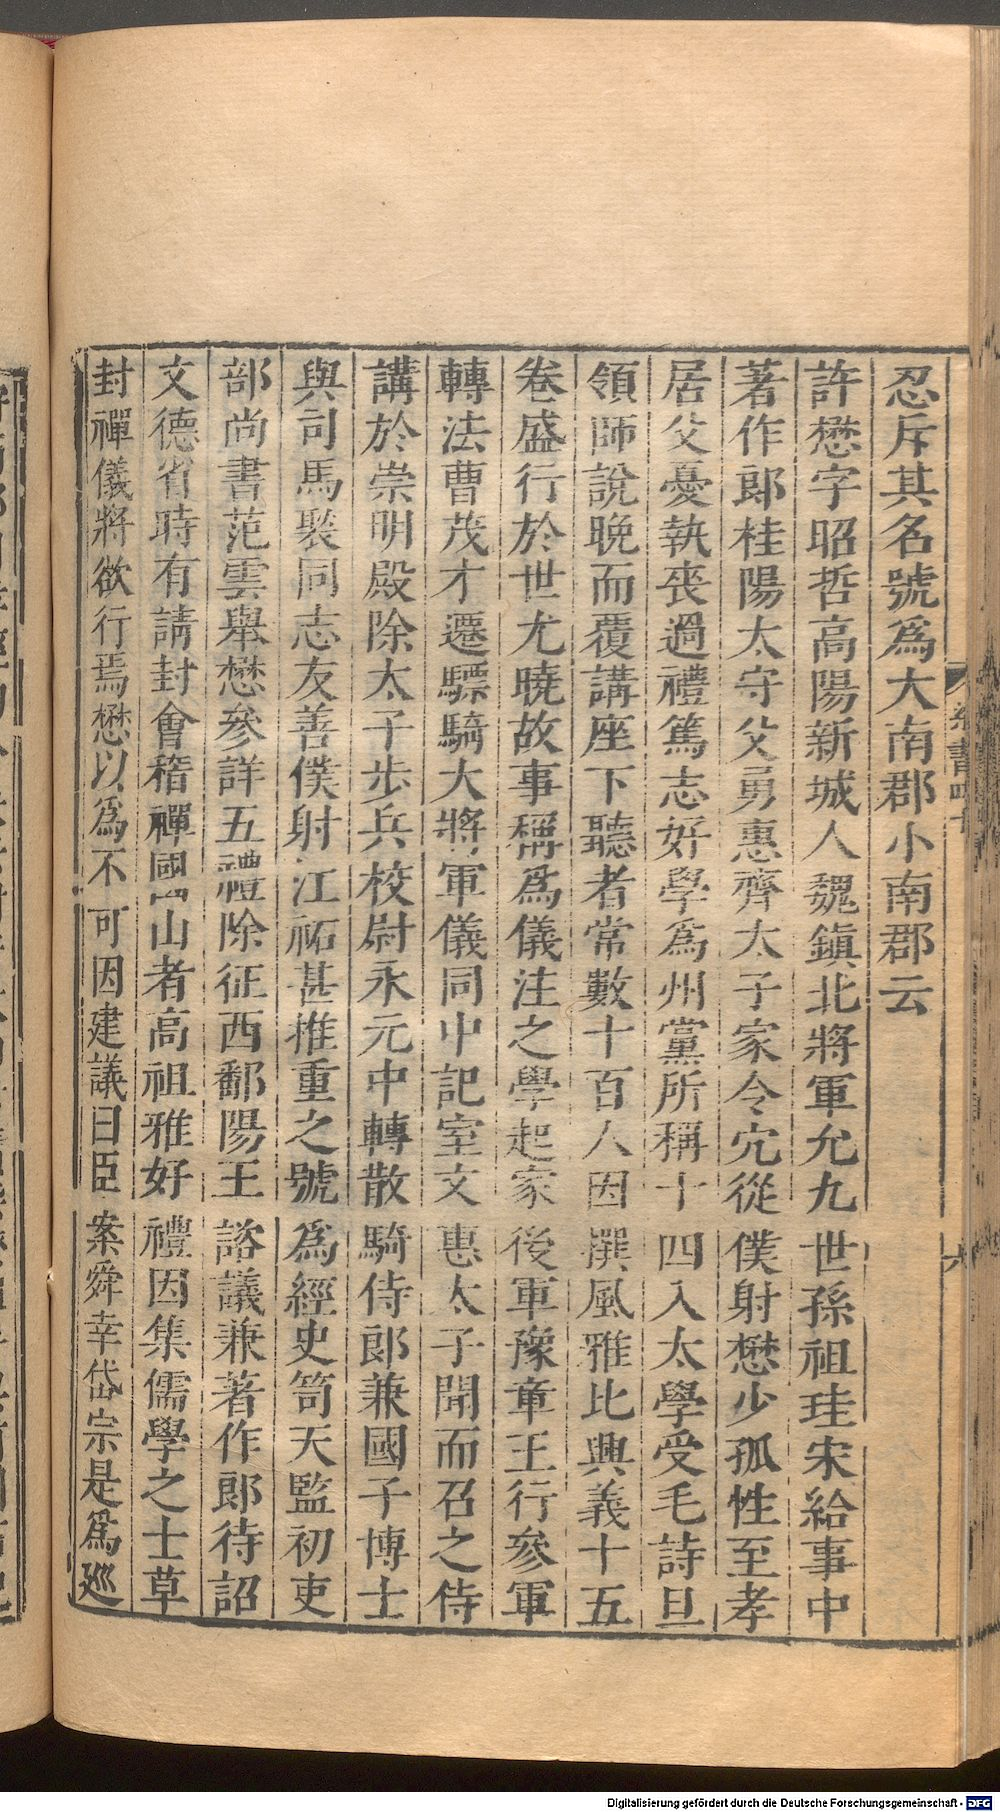 忍斥其名號爲大南郡小南郡云
許懋字昭哲高陽新城人魏鎮北將軍允九世孫祖珪宋給事中
著作郎桂陽太守父勇惠齊太子家令宂從僕射懋少孤性至孝
居父憂執喪過禮篤志好學爲州黨所稱十四入太學受毛詩旦
領師說晚而覆講座下聽者常數十百人因撰風雅比興義十五
卷盛行於世尤曉故事稱爲儀注之學起家後軍豫章王行參軍
轉法曹茂才遷驃騎大將軍儀同中記室文惠太子聞而召之侍
講於崇明殿除太子步兵校尉永元中轉散騎侍郎兼國子博士
與司馬褧同志友善僕射江祏甚推重之號爲經史笥天監初吏
部尚書范雲舉懋參詳五禮除征西鄱陽王諮議兼著作郎待詔
文德省時有請封會稽禪國山者高祖雅好禮因集儒學之士草
封禪儀將欲行焉懋以爲不可因建議曰臣案舜幸岱宗是爲巡
梁書四十
六
Digitalisierung gefördert durch die Deutsche Forschungsgemeinschaft - DFG